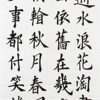 逝水浪花淘
依舊在幾
秋月春風
事都付笑